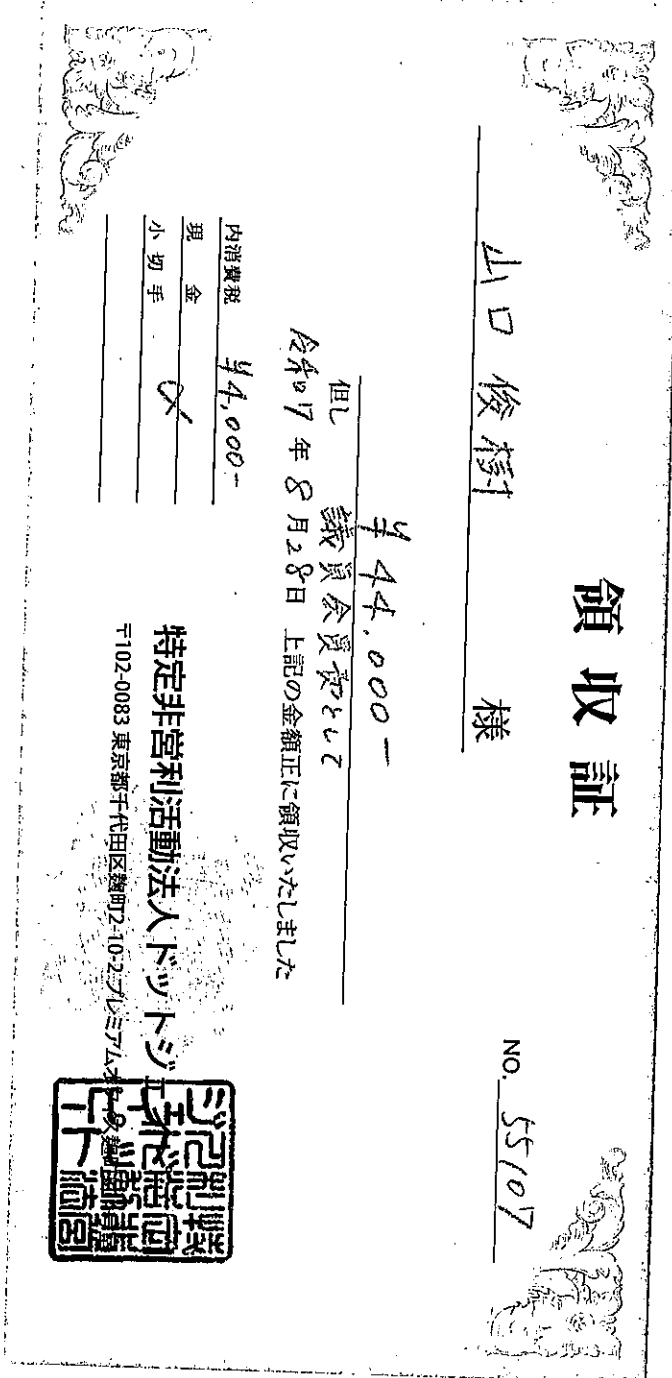 領収証
NO. 55107
山口 俊樹 様
¥44,000-
但し 議員会員費として
令和7年8月28日 上記の金額正に領収いたしました
内消費税 ¥4,000-
現金
小切手
特定非営利活動法人ドットジェイピー
〒102-0083 東京都千代田区麹町2-10-2プレミアムオフィス麹町